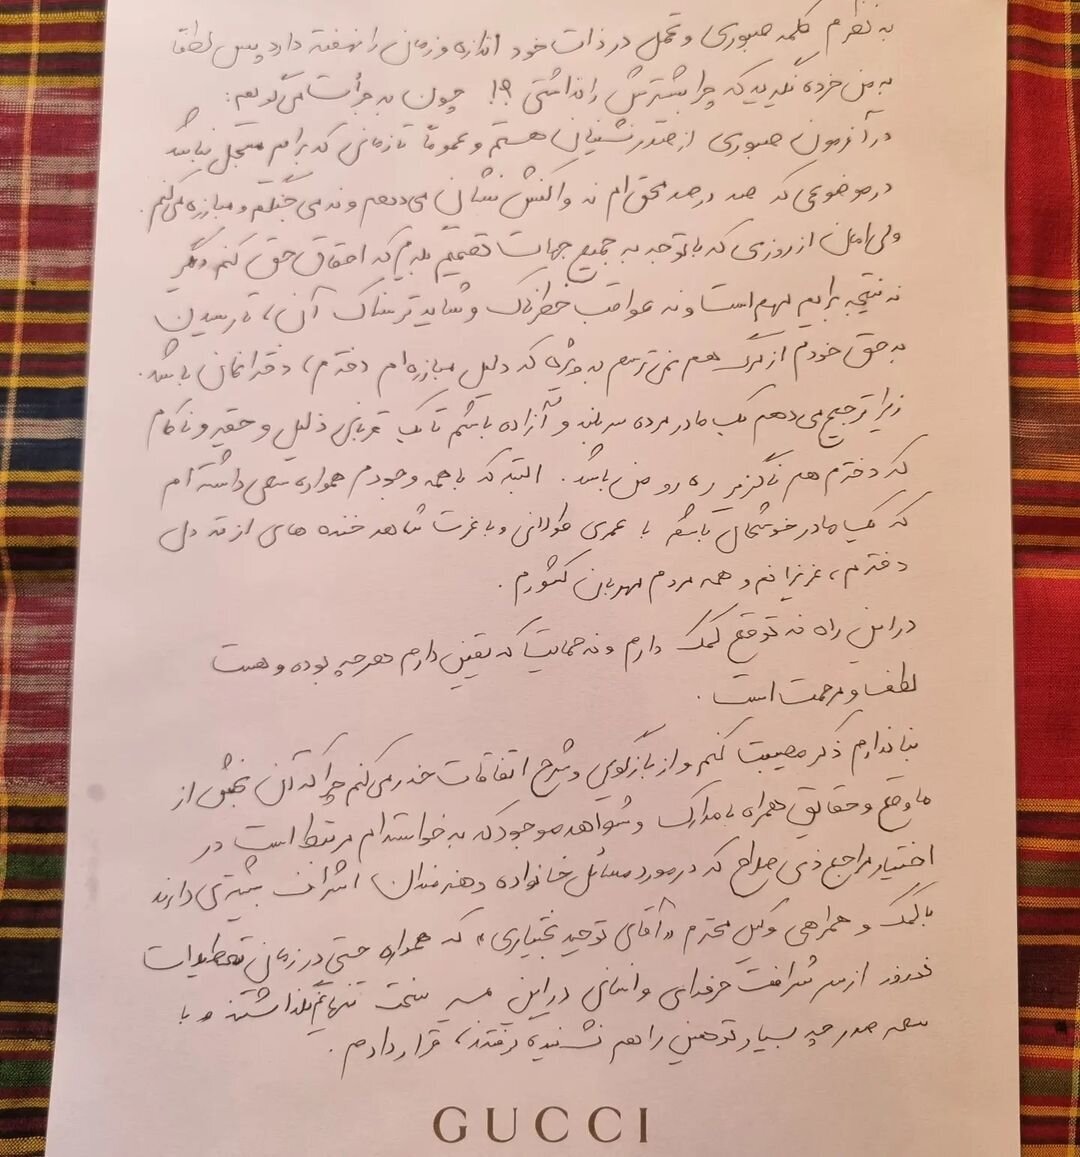 به نظرم کلمه صبوری و تحمل در ذات خود اندازه و زمان را نهفته دارد پس لطفا
به من خرده نگیرید که چرا بیشترش را نداشتی ؟! چون به جرأت می‌گویم:
در آزمون صبوری از صدرنشینان هستم و عموماً تا زمانی که برایم مسجل نباشد
در موضوعی که صد در صد محق‌ام نه واکنش نشان می‌دهم و نه می‌جنگم و مبارزه می‌کنم.
ولی امان از روزی که با توجه به جمیع جهات تصمیم بگیرم که احقاق حق کنم دیگر
نه نتیجه برایم مهم است و نه عواقب خطرناک و شاید ترسناک آن، تا رسیدن
به حق خودم از مرگ هم نمی‌ترسم به ویژه که دلیل مبارزه‌ام دخترم، دخترانمان باشد.
زیرا ترجیح می‌دهم یک مادر مرده سربلند و آزاده باشم تا یک قربانی ذلیل و حقیر و ناکام
که دخترم هم ناگزیر ره رو من باشد. البته که با همه وجودم همواره سعی داشته ام
که یک مادر خوشحال باشم با عمری طولانی و با عزت شاهد خنده های از ته دل
دخترم، عزیزانم و همه مردم مهربان کشورم.
در این راه نه توقع کمک دارم و نه حمایت که یقین دارم هر چه بوده و هست
لطف و مرحمت است.
بنا ندارم ذکر مصیبت کنم و از بازگویی و شرح اتفاقات حذر می‌کنم چرا که آن بخش از
ماوقع و حقایق همراه با مدارک و شواهد موجود که به خواسته‌ام مرتبط است در
اختیار مراجع ذی صلاح که در مورد مسائل خانواده و هنرمندان اشراف بیشتری دارند
با کمک و همراهی وکیل محترم «آقای توحید بختیاری» که همواره حتی در زمان تعطیلات
نوروز از سر شرافت حرفه‌ای و انسانی در این مسیر سخت تنهایم نگذاشتند و با
سعه صدر چه بسیار توهین را هم نشنیده گرفتند، قرار دادم.
GUCCI